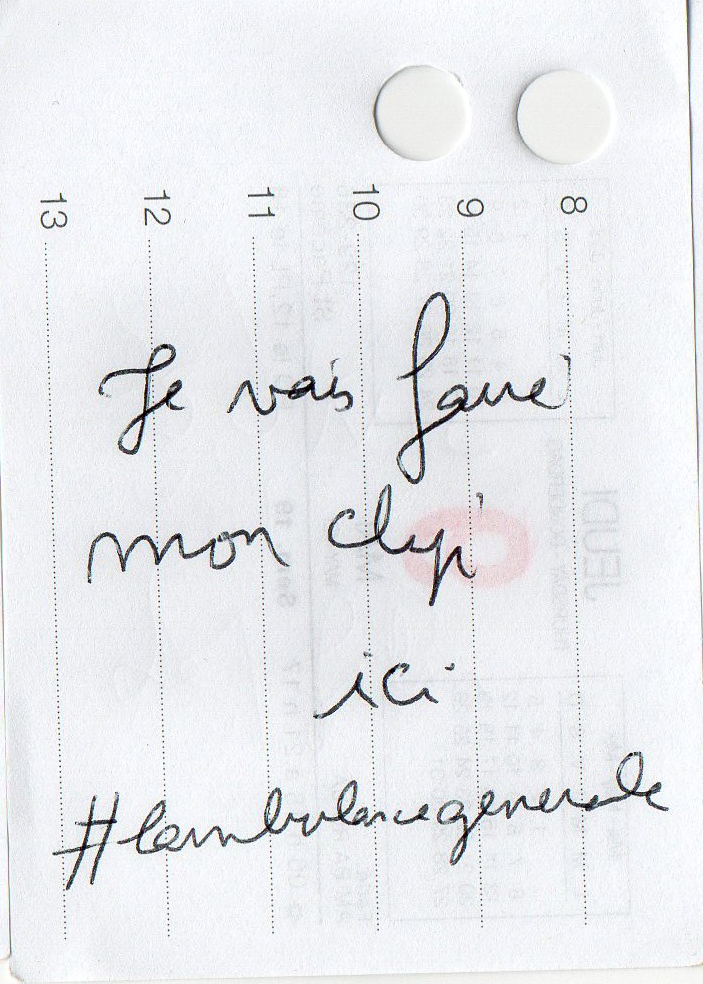 8
9
10
11
12
13
Je vais faire
mon clip
ici
#lambulancegenerale